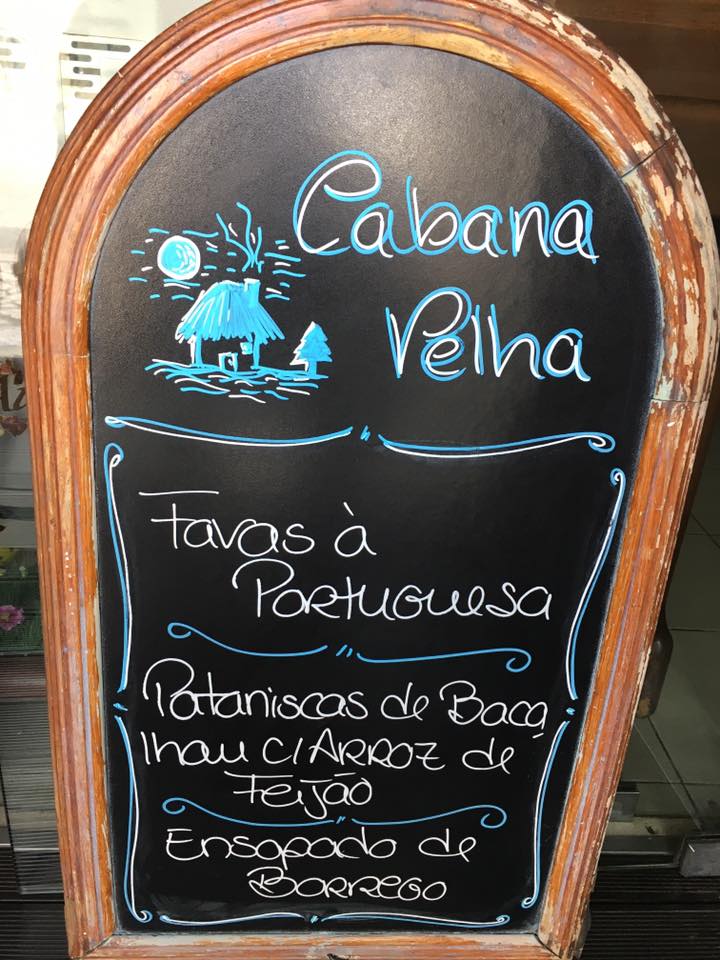 Cabana
Velha
Favas à
Portuguesa
Pataniscas de Baca
lhau c/ARROZ de
Feijão
Ensopado de
Borrego